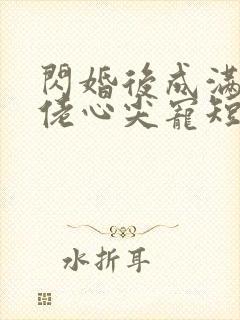 閃婚後成滿
佬心尖寵短
水折耳